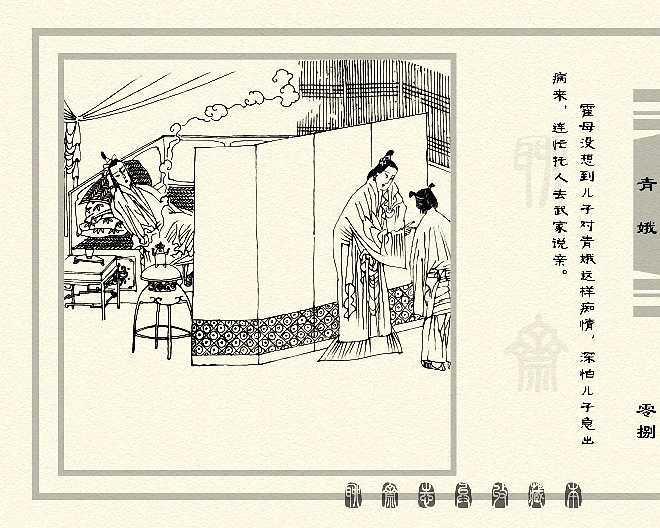 霍母没想到儿子对青娥这样痴情，深怕儿子急出
病来，连忙托人去武家说亲。
青娥
零捌
聊斋志异收藏本